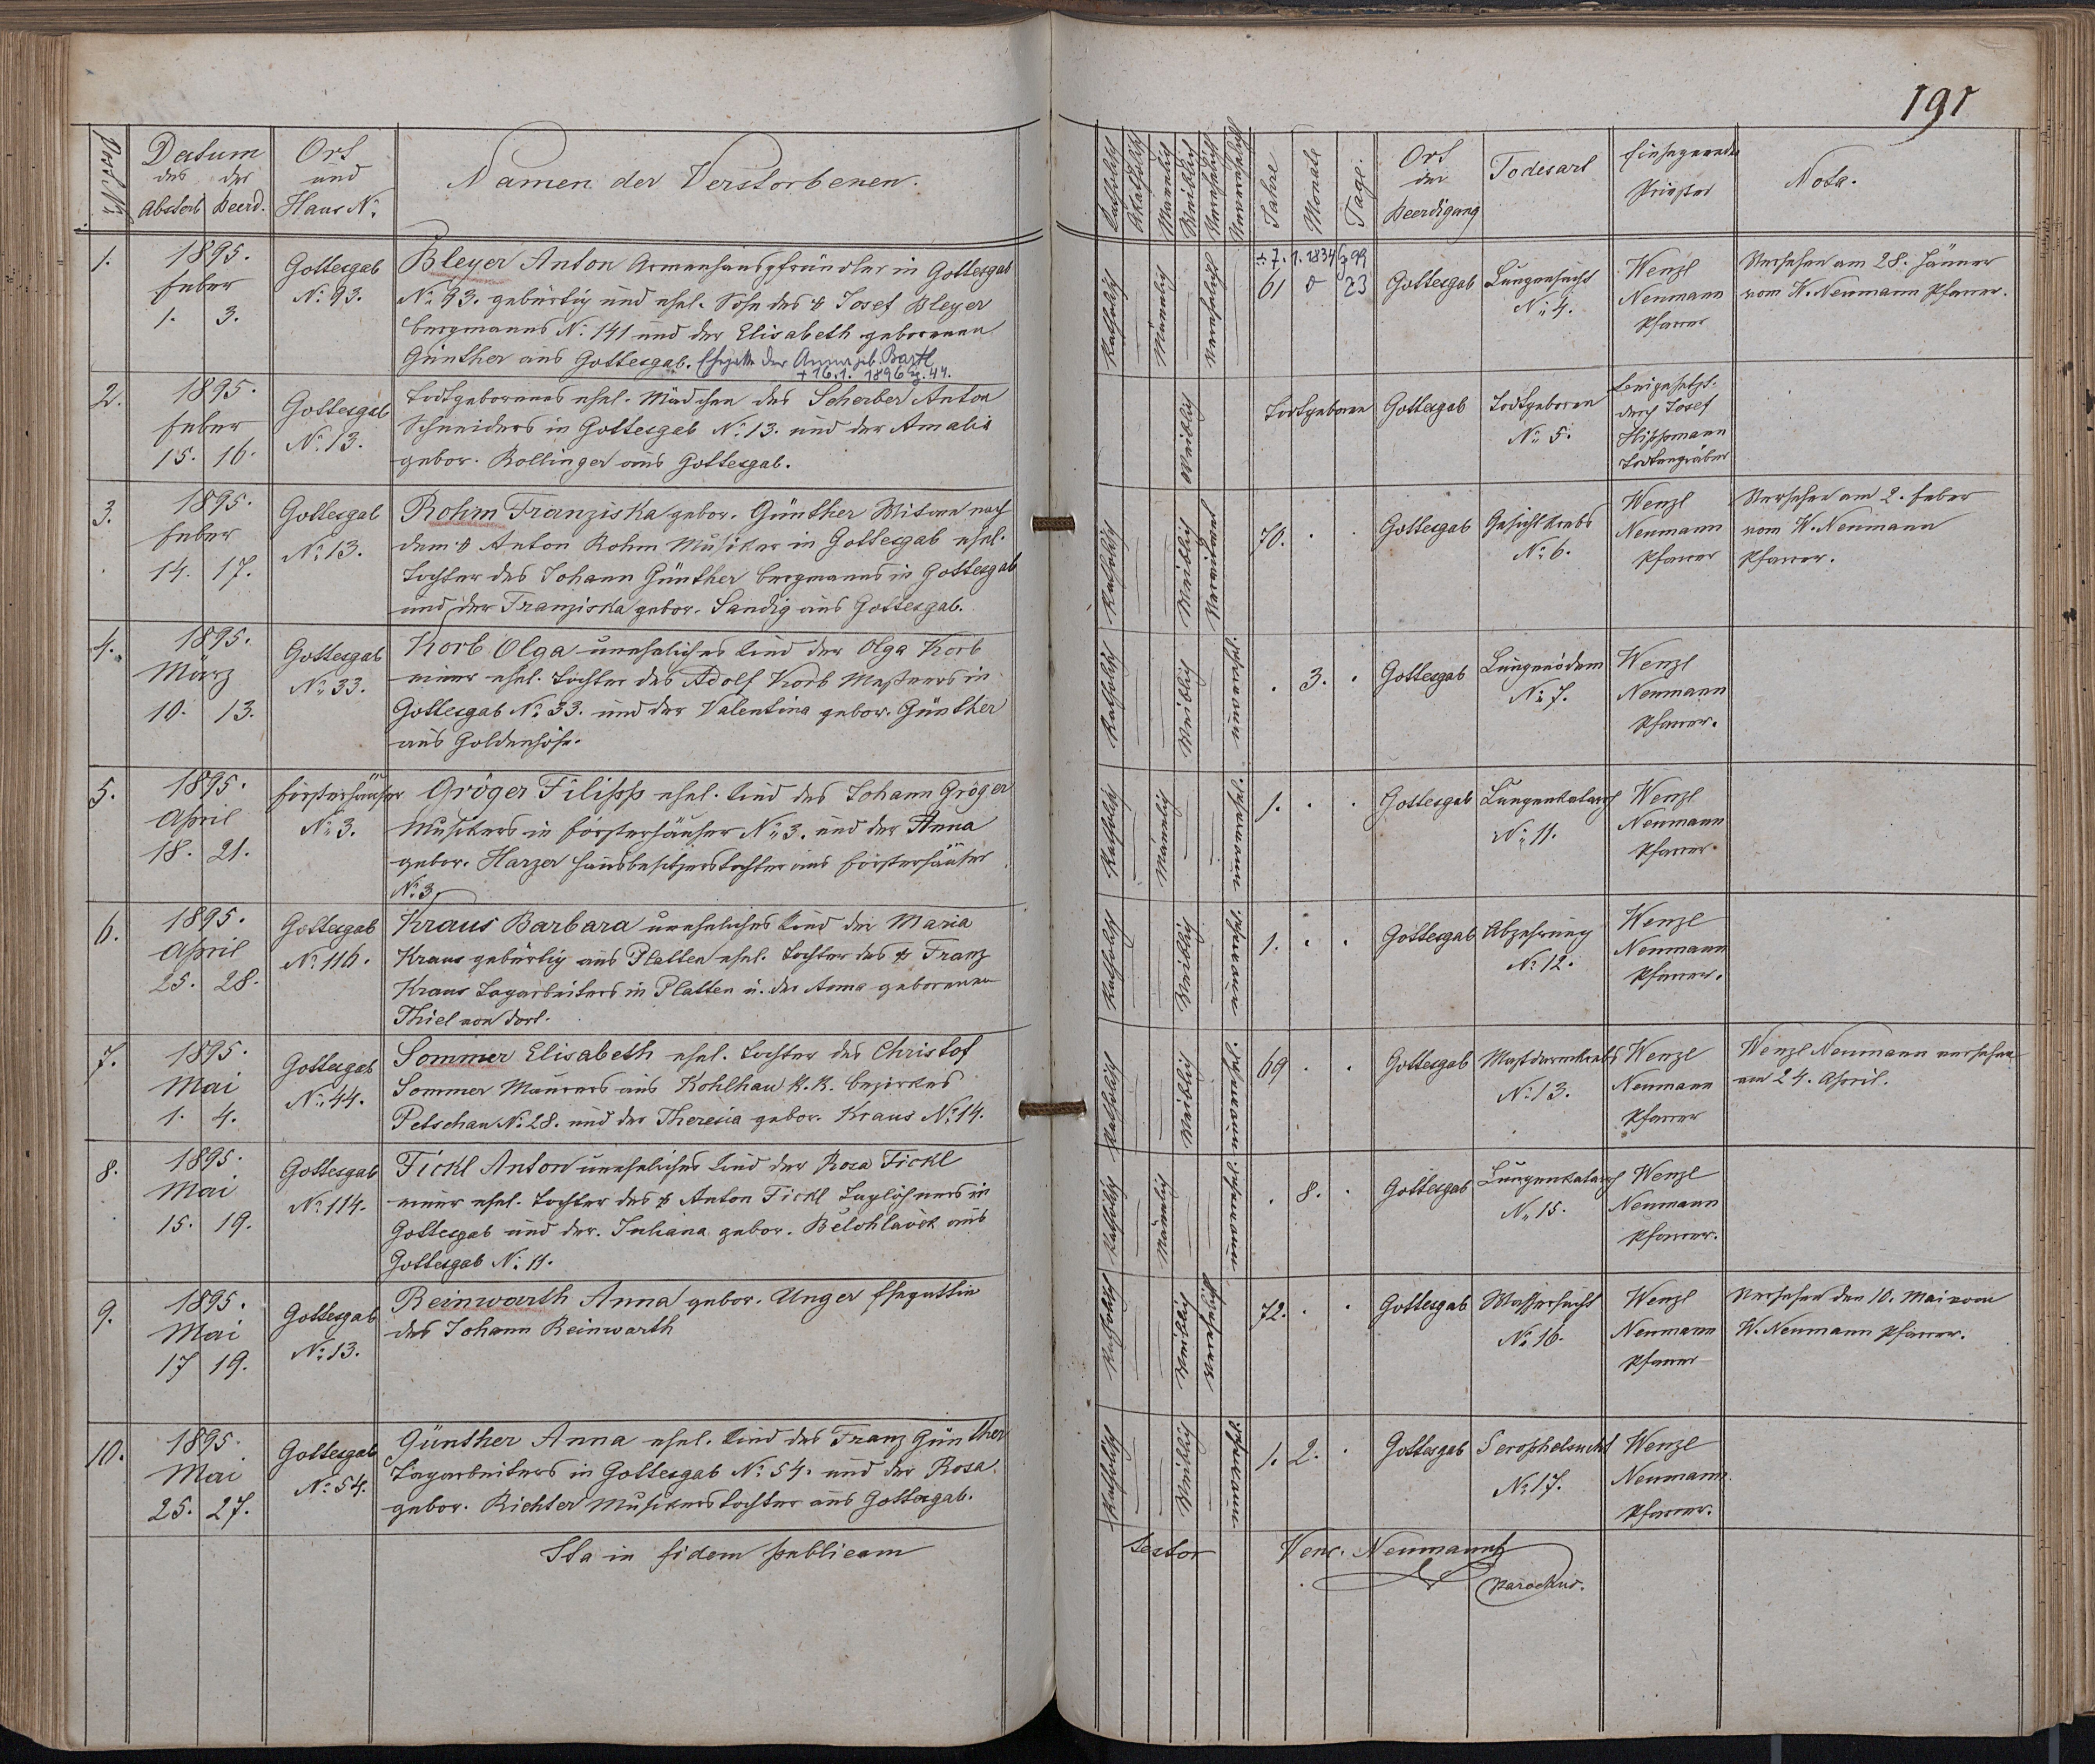 191
Post N.
Datum
des der
Absterb. Beerd.
Ort
und
Haus N.
Namen der Verstorbenen.
Katholisch
Akatholisch
Männlich
Weiblich
Verehelicht
Unverehelicht
Jahre
Monate
Tage.
Ort
der
Beerdigung
Todesart
Einsegnender
Priester
Nota.
1.
1895.
Feber
1. 3.
Gottesgab
N. 93.
Bleyer Anton Armenhauspfründler in Gottesgab
N. 93. gebürtig und ehel. Sohn des † Josef Bleyer
Bergmanns N. 141 und der Elisabeth geborenen
Günther aus Gottesgab. Ehegatte der Anna geb. Bartl
+ 16.1. 1896 Z. 44.
Katholisch
Männlich
Verehelicht
* 7. 1. 1834 99
61 0 23
Gottesgab
Lungensucht
N. 4.
Wenzl
Neumann
Pfarrer
Versehen am 28. Jänner
vom W. Neumann Pfarrer.
2.
1895.
Feber
15. 16.
Gottesgab
N. 13.
Todtgeborenes ehel. Mädchen des Scherber Anton
Schneiders in Gottesgab N. 13. und der Amalia
gebor. Kollinger aus Gottesgab.
Weiblich
Todtgeboren
Gottesgab
Todtgeboren
N. 5.
Beigesetzt
durch Josef
Hippmann
Todtengräber
3.
1895.
Feber
14. 17.
Gottesgab
N. 13.
Rohm Franziska gebor. Günther Witwe nach
dem † Anton Rohm Musiker in Gottesgab ehel.
Tochter des Johann Günther Bergmanns in Gottesgab
und der Franziska gebor. Sandig aus Gottesgab.
Katholisch
Weiblich
Verwitwet
70. . .
Gottesgab
Gesichtskrebs
N. 6.
Wenzl
Neumann
Pfarrer
Versehen am 2. Feber
vom W. Neumann
Pfarrer.
4.
1895.
März
10. 13.
Gottesgab
N. 33.
Korb Olga uneheliches Kind der Olga Korb
einer ehel. Tochter des Adolf Korb Messners in
Gottesgab N. 33. und der Valentina gebor. Günther
aus Goldenhöhe.
Katholisch
Weiblich
unverehel.
. 3. .
Gottesgab
Lungenödem
N. 7.
Wenzl
Neumann
Pfarrer.
5.
1895.
April
18. 21.
Försterhäuser
N. 3.
Gröger Filipp ehel. Kind des Johann Gröger
Musikers in Försterhäuser N. 3. und der Anna
gebor. Harzer Hausbesitzerstochter aus Försterhäuser
N. 3.
Katholisch
Männlich
unverehel.
1. . .
Gottesgab
Lungenkatarrh
N. 11.
Wenzl
Neumann
Pfarrer
6.
1895.
April
25. 28.
Gottesgab
N. 116.
Kraus Barbara uneheliches Kind der Maria
Kraus gebürtig aus Platten ehel. Tochter des † Franz
Kraus Tagarbeiters in Platten u. der Anna geborenen
Thiel von dort.
Katholisch
Weiblich
unverehel.
1. . .
Gottesgab
Abzehrung
N. 12.
Wenzl
Neumann
Pfarrer.
7.
1895.
Mai
1. 4.
Gottesgab
N. 44.
Sommer Elisabeth ehel. Tochter des Christof
Sommer Maurers aus Kohlhau k. k. Bezirkes
Petschau N. 28. und der Theresia gebor. Kraus N. 14.
Katholisch
Weiblich
unverehel.
69 . .
Gottesgab
Mastdarmkrebs
N. 13.
Wenzl
Neumann
Pfarrer
Wenzl Neumann versehen
am 24. April.
8.
1895.
Mai
15. 19.
Gottesgab
N. 114.
Tickl Anton uneheliches Kind der Rosa Tickl
einer ehel. Tochter des † Anton Tickl Taglöhners in
Gottesgab und der Juliana gebor. Belohlavek aus
Gottesgab N. 11.
Katholisch
Männlich
unverehel.
. 8. .
Gottesgab
Lungenkatarrh
N. 15.
Wenzl
Neumann
Pfarrer.
9.
1895.
Mai
17 19.
Gottesgab
N. 13.
Reinwarth Anna gebor. Unger Ehegattin
des Johann Reinwarth
Katholisch
Weiblich
Verehelicht
72. . .
Gottesgab
Wassersucht
N. 16.
Wenzl
Neumann
Pfarrer
Versehen den 10. Mai vom
W. Neumann Pfarrer.
10.
1895.
Mai
25. 27.
Gottesgab
N. 54.
Günther Anna ehel. Kind des Franz Günther
Tagarbeiters in Gottesgab N. 54. und der Rosa
gebor. Richter Musikerstochter aus Gottesgab.
Katholisch
Weiblich
unverehel.
1. 2. .
Gottesgab
Scrophelsucht
N. 17.
Wenzl
Neumann
Pfarrer.
Ita in fidem publicam testor Venc. Neumann
Parochus.